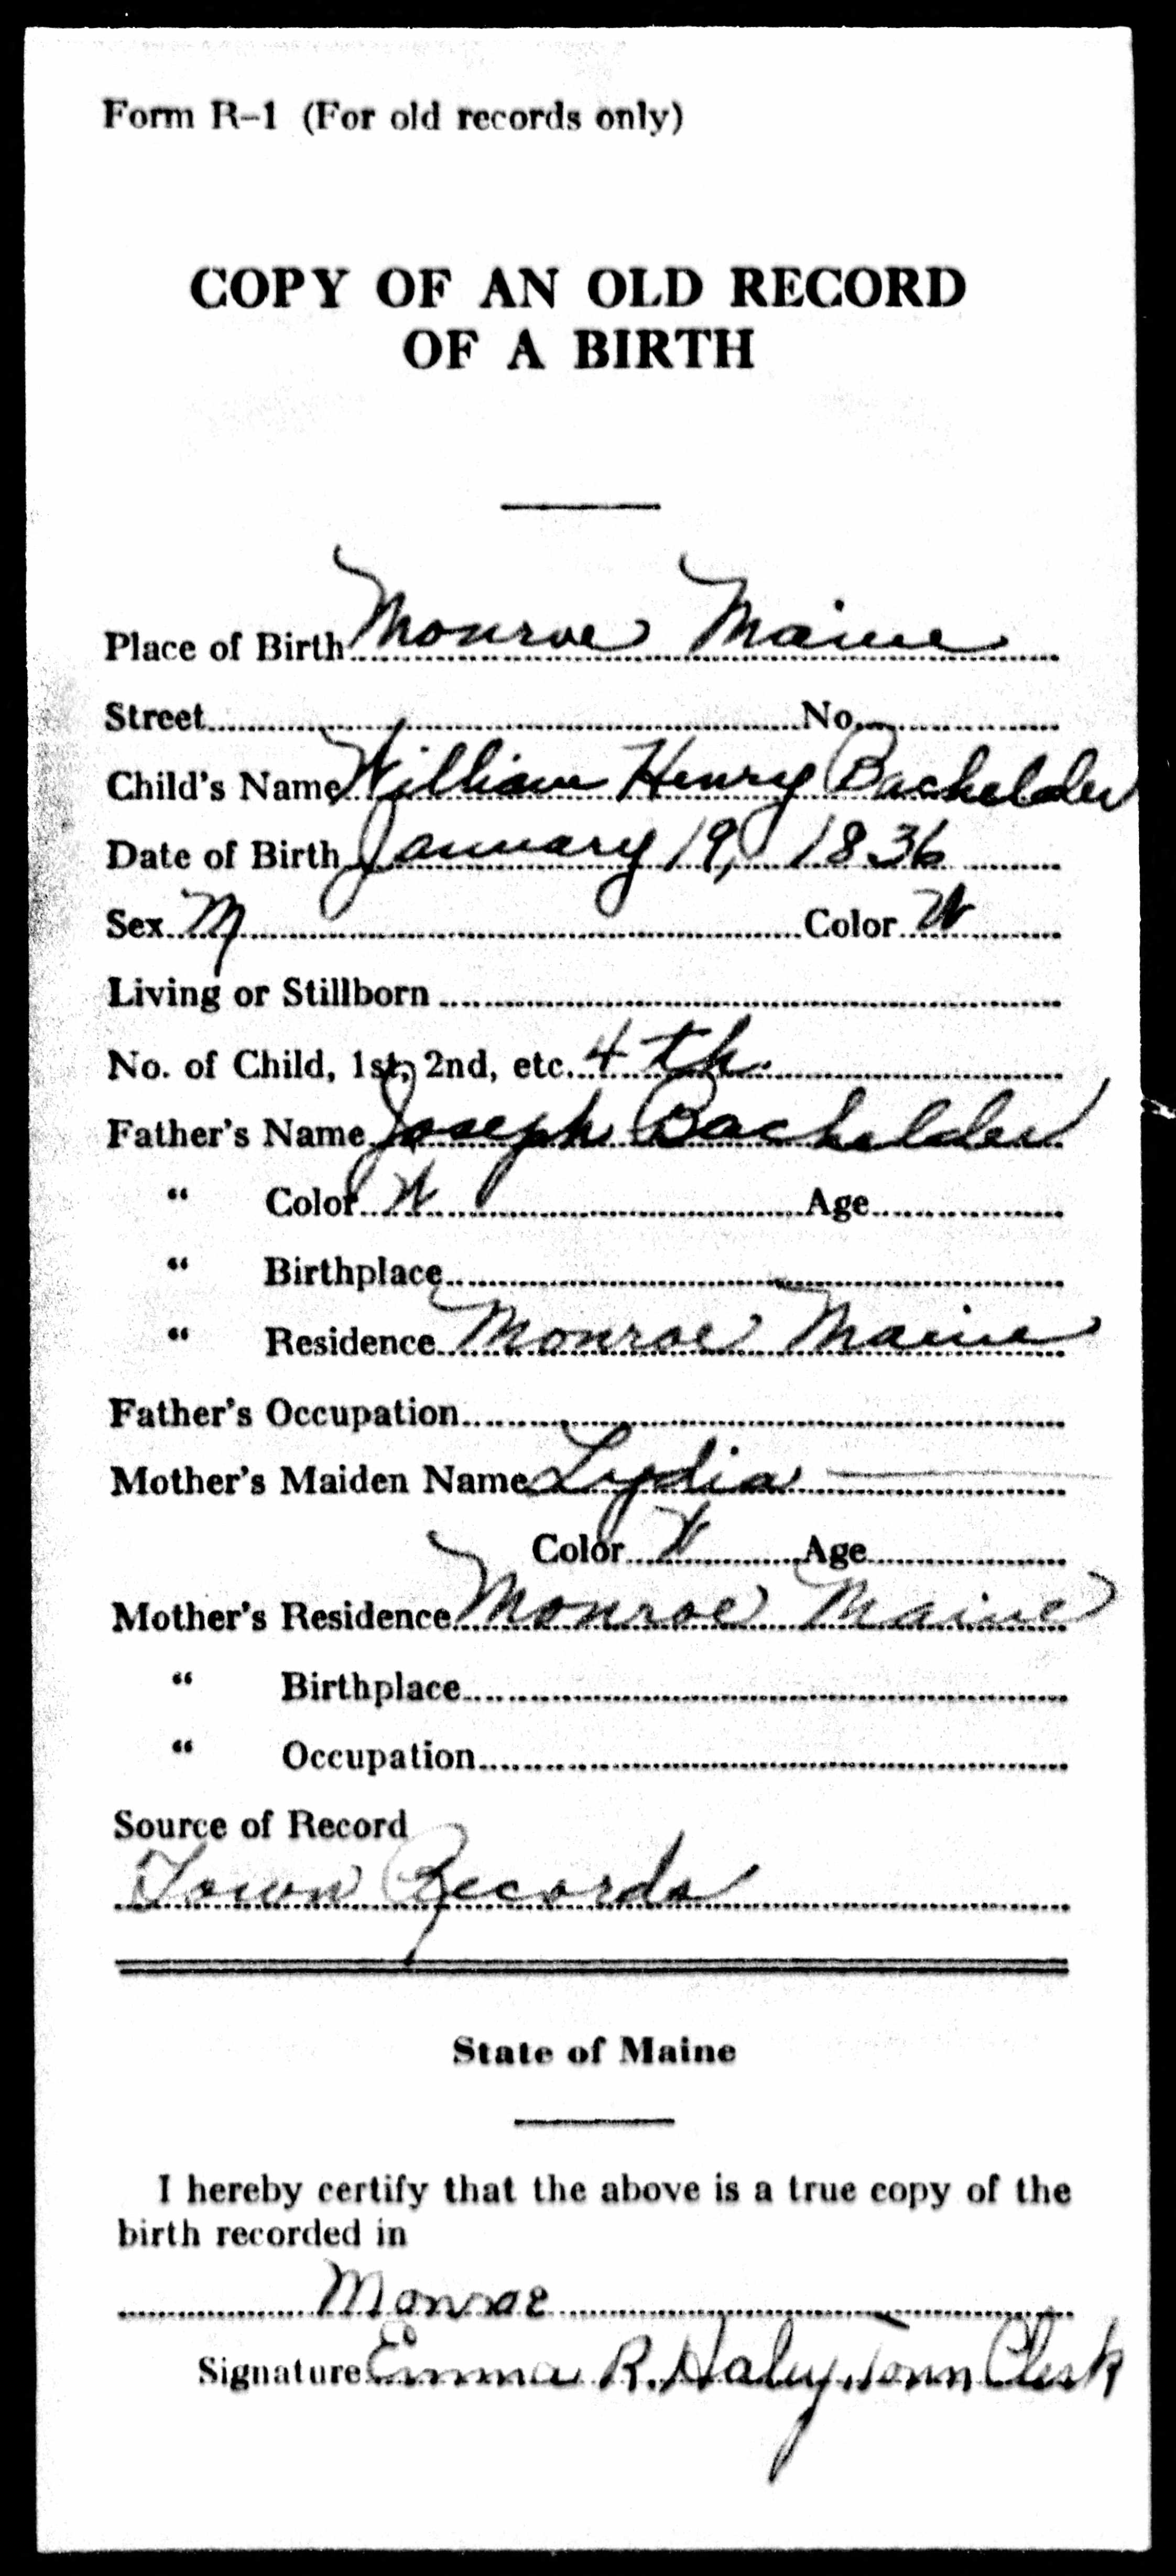 Form R-1 (For old records only)
COPY OF AN OLD RECORD
OF A BIRTH
Place of Birth Monroe Maine
Street No.
Child's Name William Henry Bachelder
Date of Birth January 19, 1836
Sex M Color W
Living or Stillborn
No. of Child, 1st, 2nd, etc. 4th.
Father's Name Joseph Bachelder
" Color W Age
" Birthplace
" Residence Monroe Maine
Father's Occupation
Mother's Maiden Name Lydia —
Color W Age
Mother's Residence Monroe Maine
" Birthplace
" Occupation
Source of Record
Town Records
State of Maine
I hereby certify that the above is a true copy of the
birth recorded in
Monroe
Signature Emma R. Haley, Town Clerk